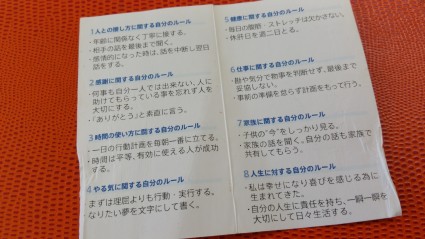 1人との接し方に関する自分のルール
・年齢に関係なく丁寧に接する。
・相手の話を最後まで聞く。
・感情的になった時は、話を中断し翌日
話をする。
2感謝に関する自分のルール
・何事も自分一人では出来ない、人に
助けてもらっている事を忘れず人を
大切にする。
・「ありがとう」と素直に言う。
3時間の使い方に関する自分のルール
・一日の行動計画を毎朝一番に立てる。
・時間は平等、有効に使える人が成功
する。
4やる気に関する自分のルール
まずは理屈よりも行動・実行する。
なりたい夢を文字にして書く。
5健康に関する自分のルール
・毎日の腹筋・ストレッチは欠かさない。
・休肝日を週二日とる。
6仕事に関する自分のルール
・勘や気分で物事を判断せず、最後まで
妥協しない。
・事前の準備を怠らず計画をもって行う。
7家族に関する自分のルール
・子供の"今"をしっかり見る。
・家族の話を聞く、自分の話も家族で
共有してもらう。
8人生に対する自分のルール
・私は幸せになり喜びを感じる為に
生まれてきた。
・自分の人生に責任を持ち、一瞬一瞬を
大切にして日々生活する。